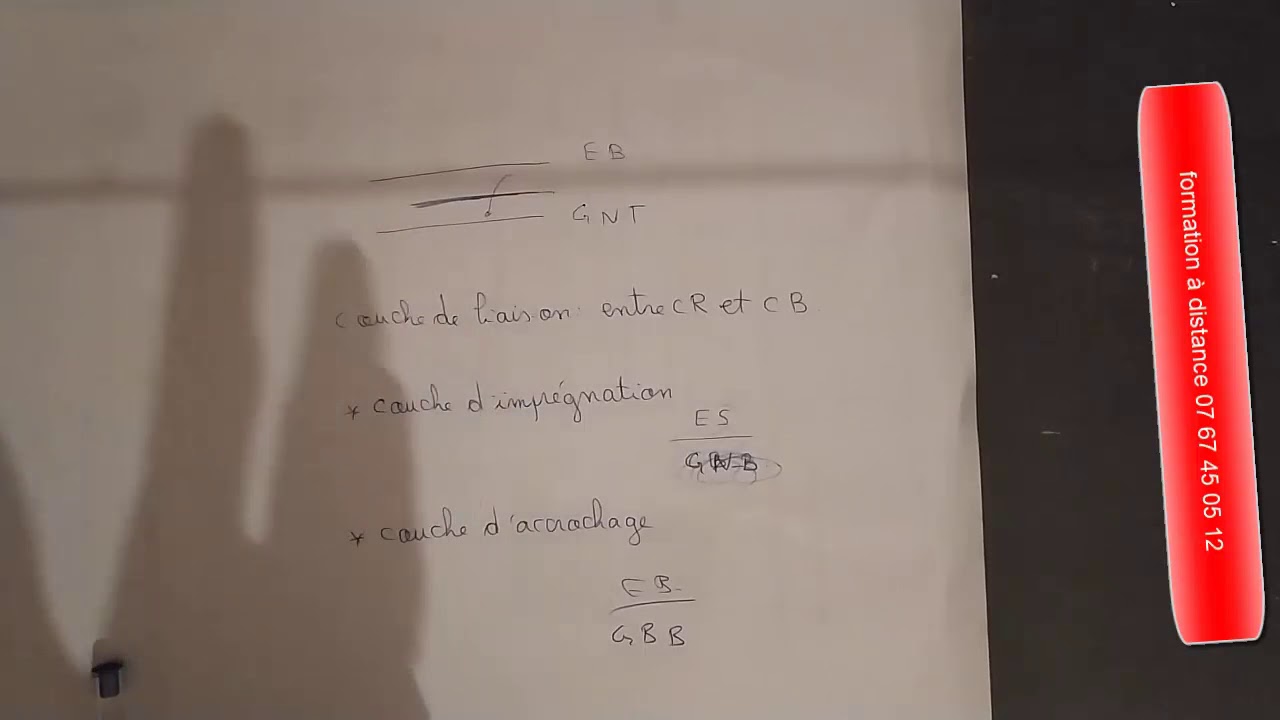 EB
GNT
couche de liaison: entre CR et CB.
* couche d'imprégnation
ES
* couche d'accrochage
EB
GBB
formation à distance 07 67 45 05 12